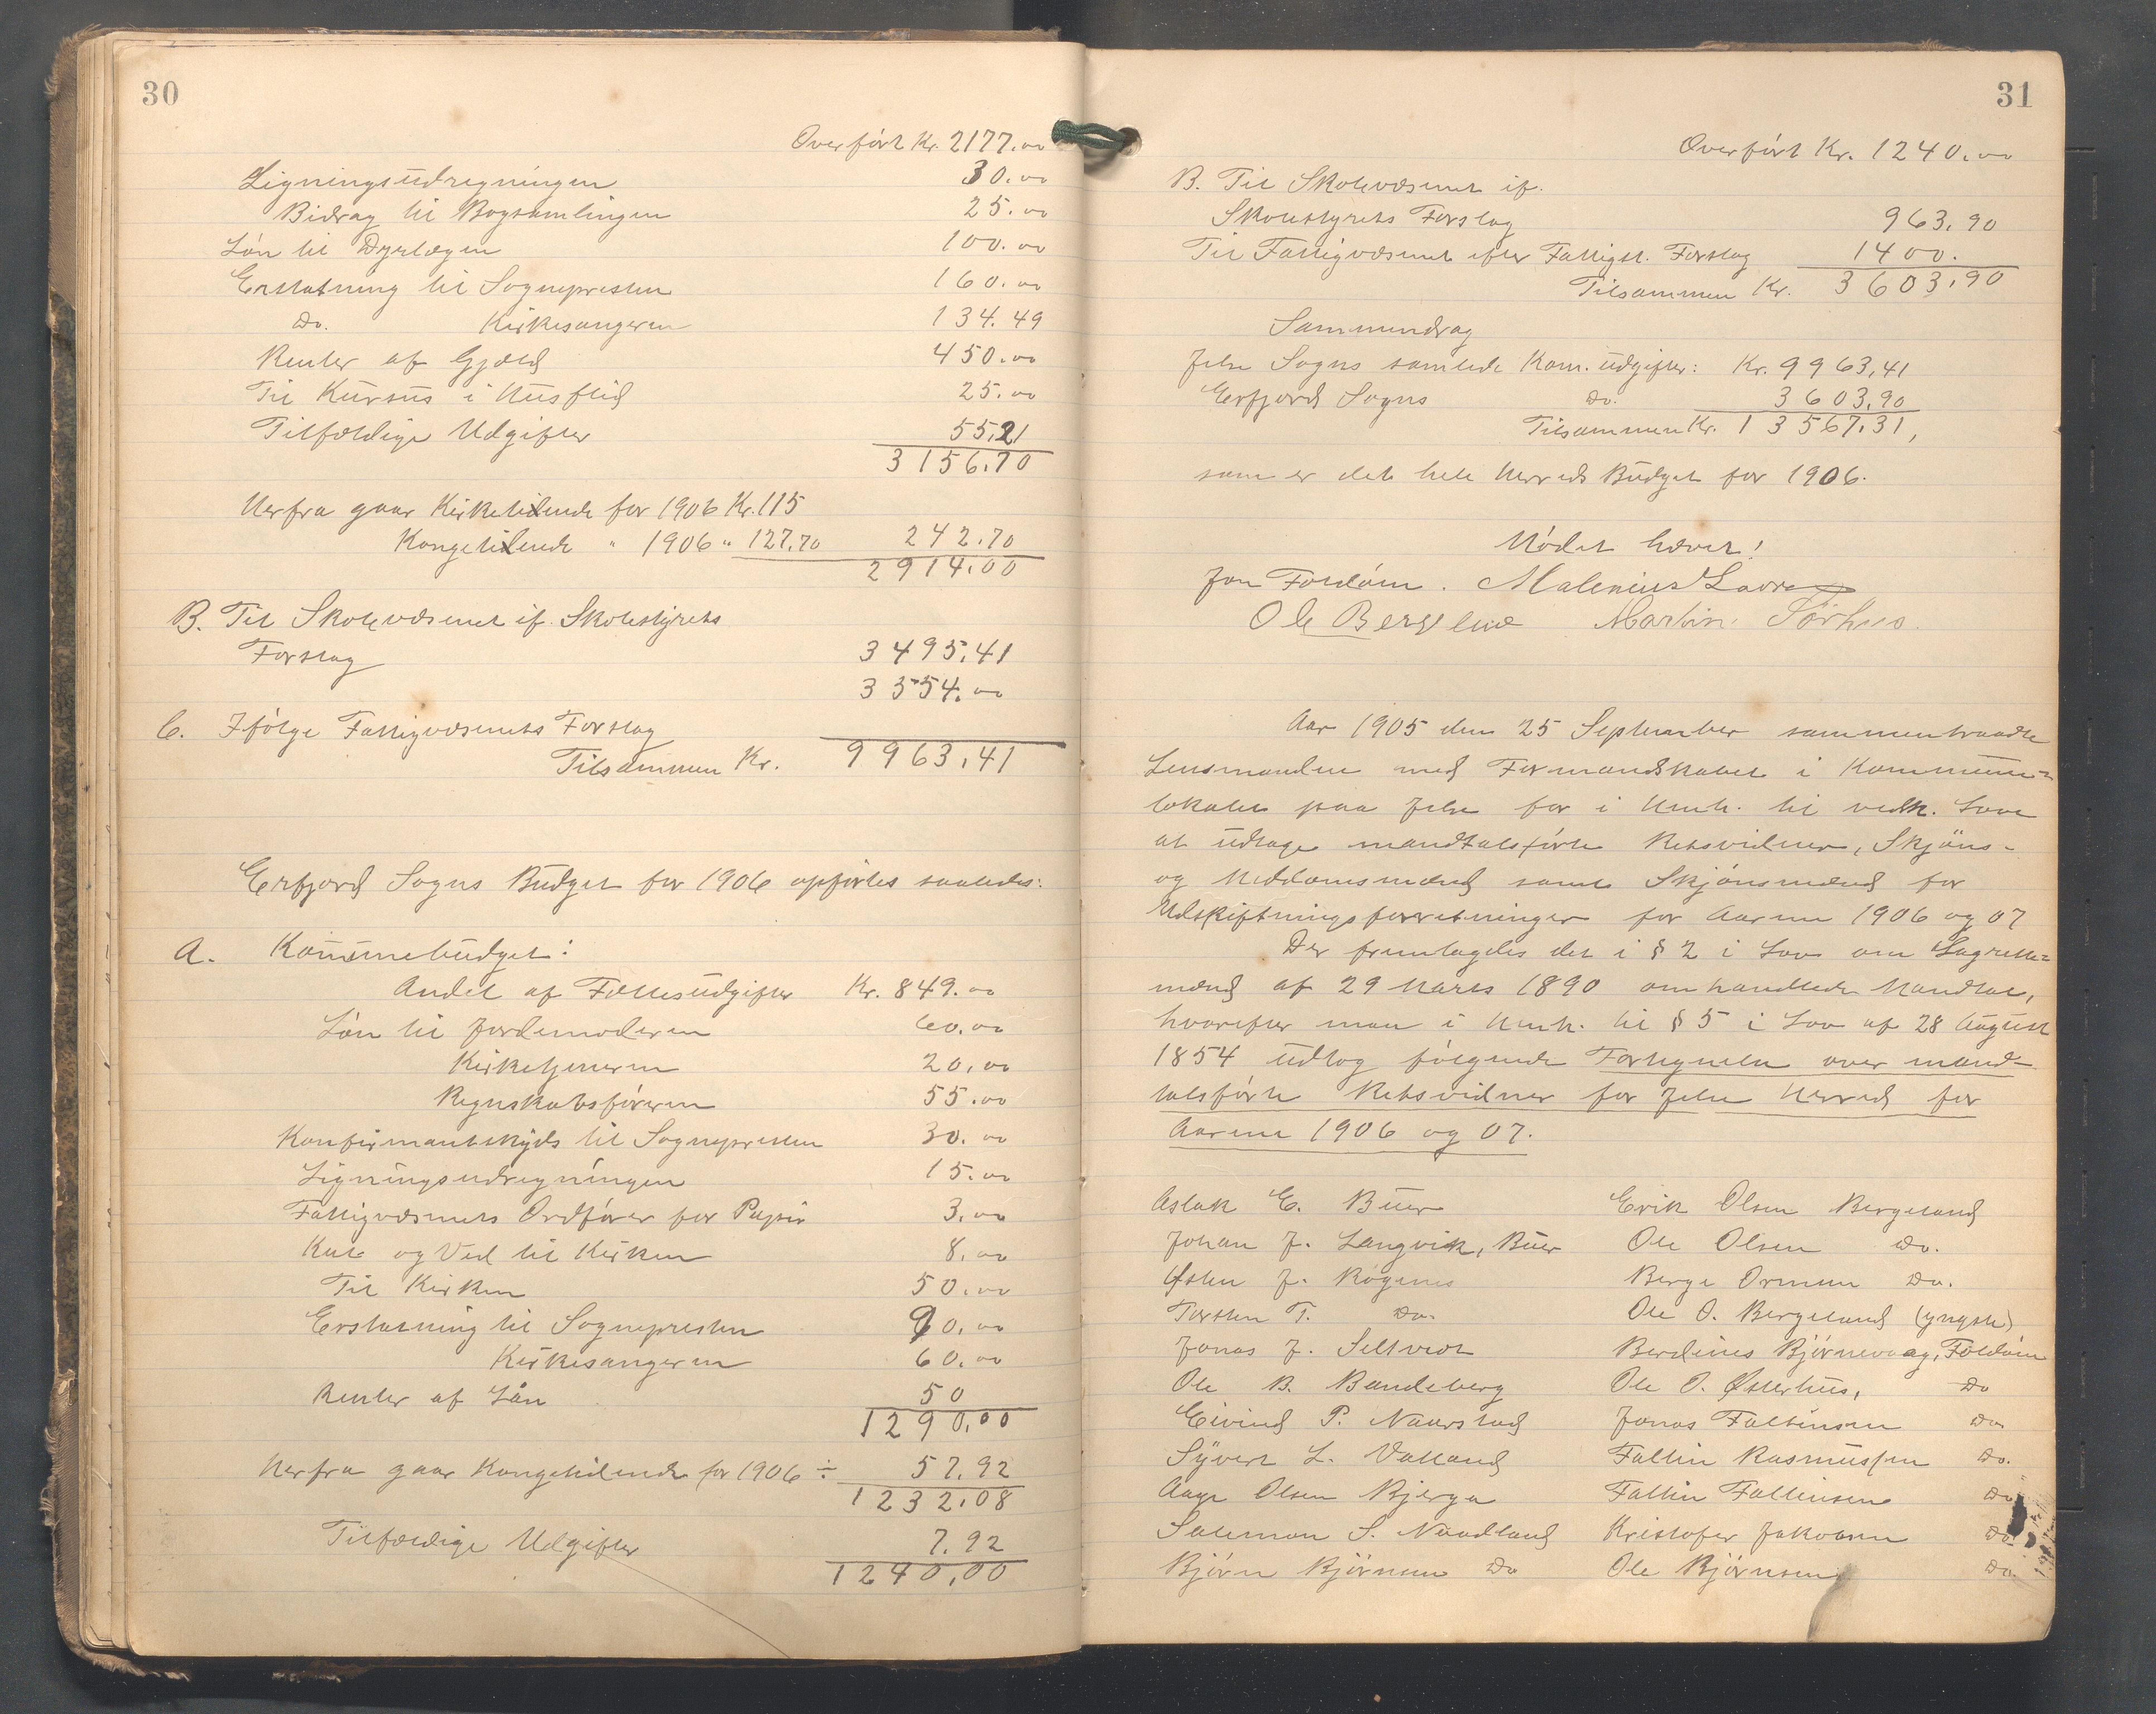 30
Overført Kr. 2177.00
Ligningsudregningen 30.00
Bidrag til Bogsamlingen 25.00
Løn til Dyrlægen 100.00
Erstatning til Sognepresten 160.00
Do. Kirkesangeren 134.49
Renter af Gjæld 450.00
Til Kursus i Husflid 25.00
Tilfældige Udgifter 55,21
3156.70
Herfra gaar Kirketiende for 1906 Kr. 115
Kongetiende " 1906 " 127.70 242.70
2914.00
B. Til Skolevæsenet if. Skolestyrets
Forslag 3495,41
3554.00
C. Ifølge Fattigvæsenets Forslag
Tilsammen Kr. 9963,41
Erfjord Sogns Budget for 1906 opførtes saaledes:
A. Kommunebudget:
Andel af Fællesudgifter Kr. 849.00
Løn til Jordemoderen 60.00
Kirketjeneren 20,00
Regnskabsføreren 55.00
Konfirmantskyds til Sognepresten 30.00
Ligningsudregningen 15.00
Fattigvæsenets Ordfører for Papir 3.00
Kul og Ved til Kirken 8.00
Til Kirken 50.00
Erstatning til Sognepresten 90.00
Kirkesangeren 60.00
Renter af Lån 50
1290,00
Herfra gaar Kongetiende for 1906 ÷ 57.92
1232.08
Tilfældige Udgifter 7.92
1240,00
31
Overført Kr. 1240.00
B. Til Skolevæsenet if.
Skolestyrets Forslag 963,90
Til Fattigvæsenet efter Fattigst. Forslag 1400.
Tilsammen Kr. 3603,90
Sammendrag
Jelse Sogns samlede Kom. udgifter: Kr. 9963,41
Erfjord Sogns Do. 3603,90
Tilsammen Kr. 13567.31,
som er det hele Herreds Budget for 1906.
Mødet hævet!
Jon Foldøen. Malenius Lavra
Ole Bergeland Martin Tørhus.
Aar 1905 den 25 September sammentraadte
Lensmanden med Formandskabet i Kommune=
lokalet paa Jelse for i Henh. til vedk. Love
at udtage mandtalsførte Retsvidner, Skjøns-
og Meddomsmænd samt Skjønsmænd for
Udskiftningsforretninger for Aarene 1906 og 07
Der fremlagdes det i § 2 i Lov om Lagrette=
mænd af 29 Marts 1890 omhandlede Mandtal,
hvorefter man i Henh. til § 5 i Lov af 28 August
1854 udtog følgende Fortegnelse over mand-
talsførte Retsvidner for Jelse Herred for
Aarene 1906 og 07.
Aslak E. Buer Erik Olsen Bergeland
Johan J. Langvik, Buer Ole Olsen Do.
Østen J. Røgenes Berge Ormsen Do.
Torsten T. Do. Ole O. Bergeland (yngste)
Jonas J. Selland Berdines Bjørnevaag, Foldøen
Ole B. Bandeberg Ole O. Østerhus, Do
Eivind P. Naavstad Jonas Faltinsen Do.
Syvert L. Valland Faltin Rasmussen Do.
Aage Olsen Bjerga Faltin Faltinsen Do
Salemon S. Naadland Kristofer Jakobsen Do
Bjørn Bjørnsen Do Ole Bjørnsen Do.